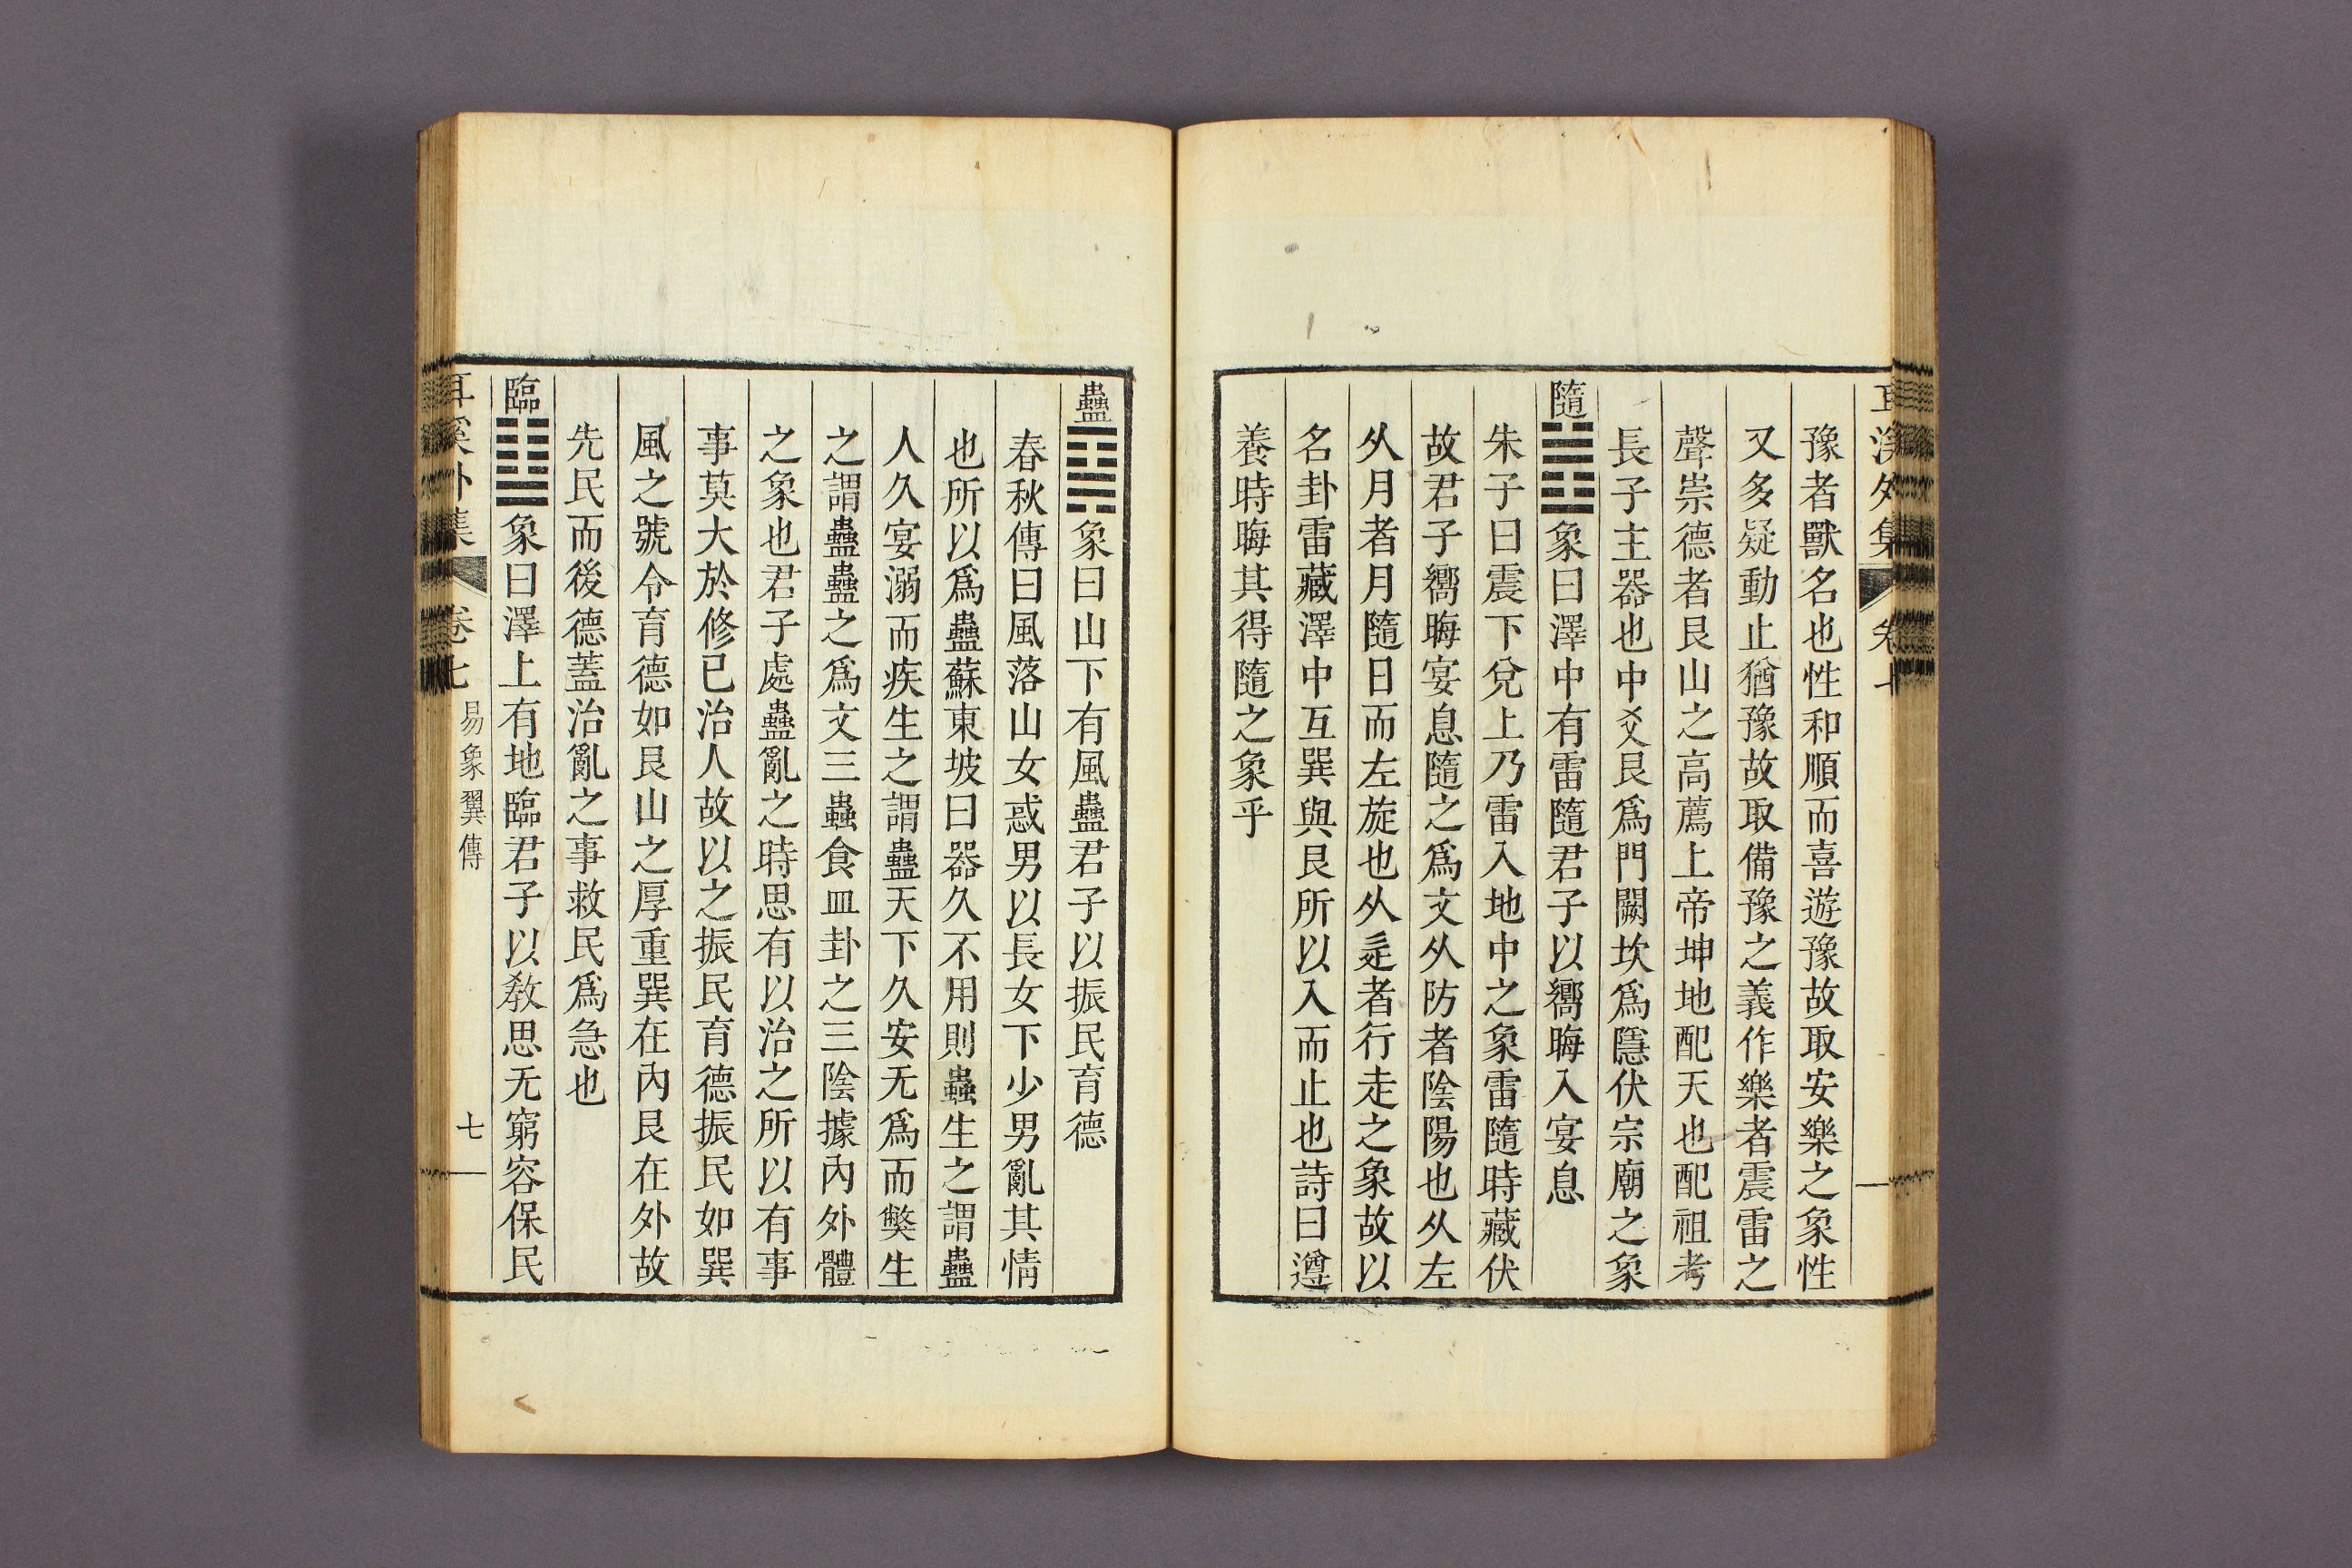 豫者獸名也性和順而喜遊豫故取安樂之象性
又多疑動止猶豫故取備豫之義作樂者震雷之
聲崇德者艮山之高薦上帝坤地配天也配祖考
長子主器也中爻艮爲門闕坎爲隱伏宗廟之象
隨䷐象曰澤中有雷隨君子以嚮晦入宴息
朱子曰震下兌上乃雷入地中之象雷隨時藏伏
故君子嚮晦宴息隨之爲文从防者陰陽也从左
从月者月隨日而左旋也从辵者行走之象故以
名卦雷藏澤中互巽與艮所以入而止也詩曰遵
養時晦其得隨之象乎
蠱䷑象曰山下有風蠱君子以振民育德
春秋傳曰風落山女惑男以長女下少男亂其情
也所以爲蠱蘇東坡曰器久不用則蟲生之謂蠱
人久宴溺而疾生之謂蠱天下久安无爲而獘生
之謂蠱蠱之爲文三蟲食皿卦之三陰據內外體
之象也君子處蠱亂之時思有以治之所以有事
事莫大於修已治人故以之振民育德振民如巽
風之號令育德如艮山之厚重巽在內艮在外故
先民而後德蓋治亂之事救民爲急也
臨䷒象曰澤上有地臨君子以敎思无窮容保民
耳溪外集 卷七 易象翼傳 七